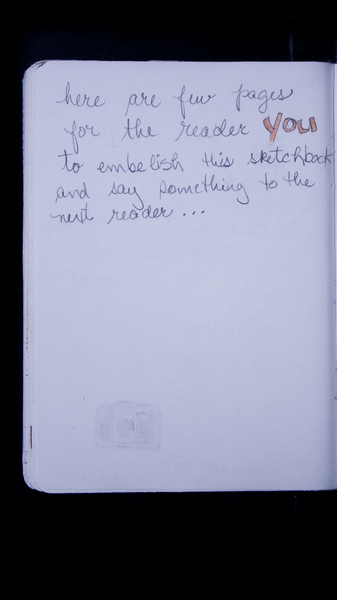 here are few pages
for the reader YOU
to embelish this sketchbook
and say something to the
next reader...